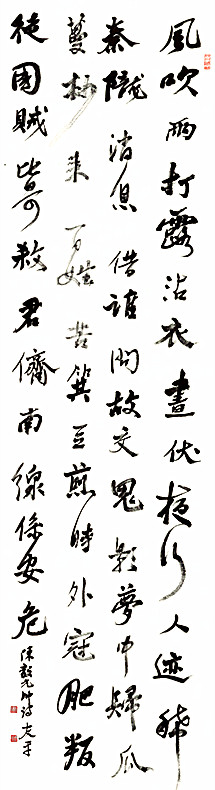 風吹雨打露沾衣晝伏夜行人迹稀
秦隴消息借誰問故交鬼影夢中歸瓜
蔓抄来百姓苦箕豆煎時外寇肥叛
徒國賊皆可殺君儕南線係安危
陳毅元帥詩